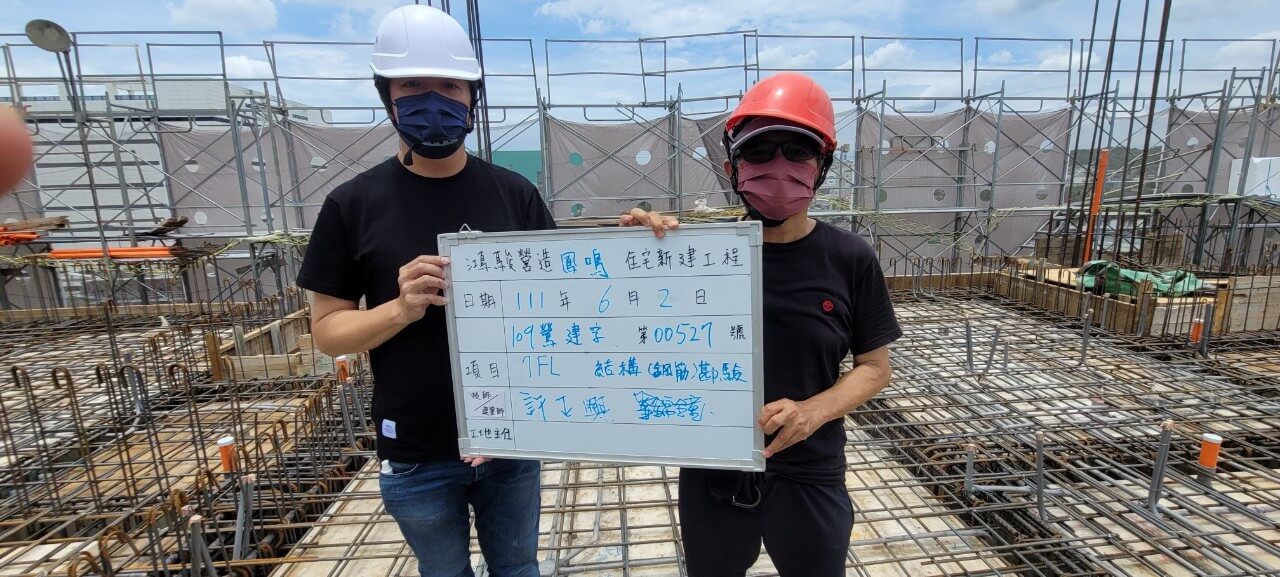 鴻駿營造鳳鳴 住宅新建工程
日期 111年 6月2日
109營建字 第00527號
項目 7FL 結構(鋼筋)勘驗
技師/建築師 許正興
工地主任